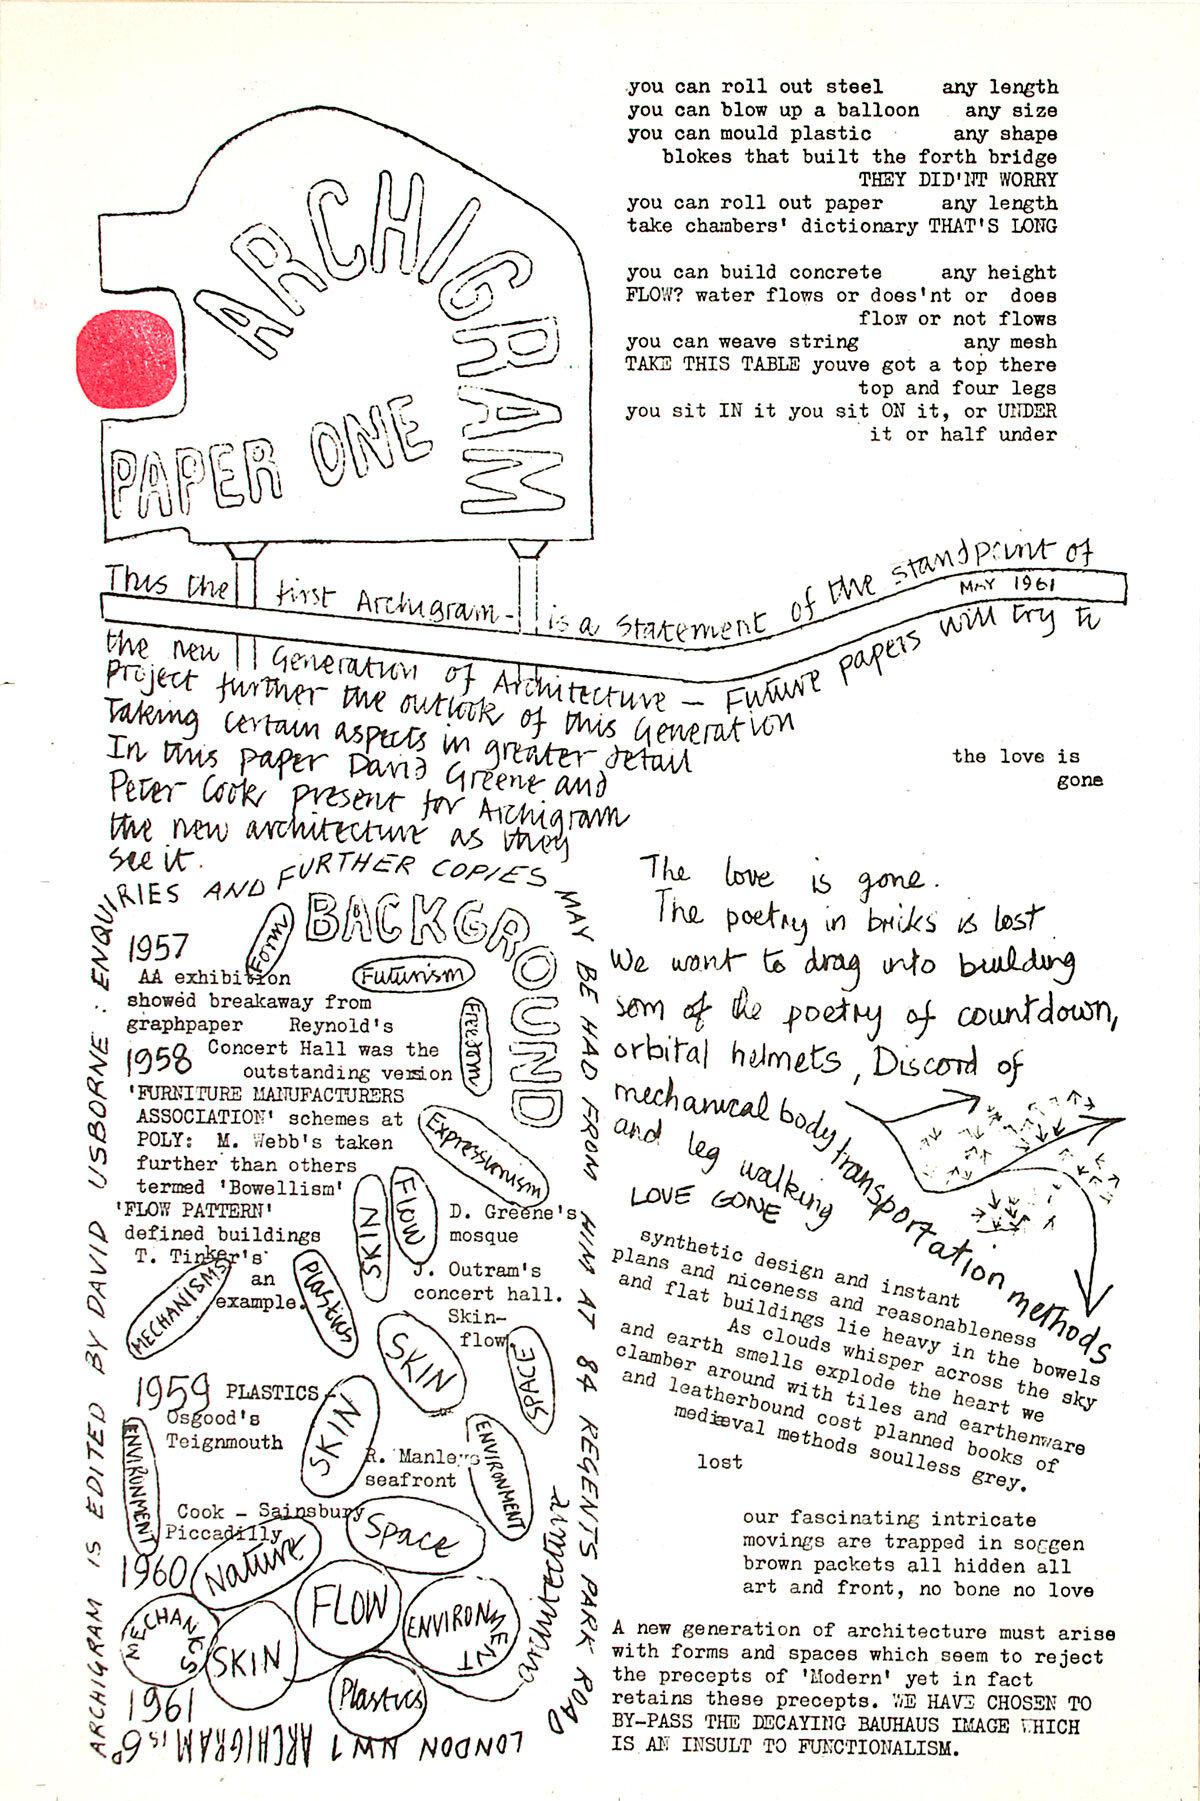 ARCHIGRAM
PAPER ONE
you can roll out steel any length
you can blow up a balloon any size
you can mould plastic any shape
blokes that built the forth bridge
THEY DID'NT WORRY
you can roll out paper any length
take chambers' dictionary THAT'S LONG
you can build concrete any height
FLOW? water flows or does'nt or does
flow or not flows
you can weave string any mesh
TAKE THIS TABLE youve got a top there
top and four legs
you sit IN it you sit ON it, or UNDER
it or half under
This the first Archigram - is a statement of the standpoint of
MAY 1961
the new Generation of Architecture — Future papers will try to
Project further the outlook of this Generation
Taking certain aspects in greater detail
In this paper David Greene and
Peter Cook present for Archigram
the new architecture as they
see it.
the love is
gone
ARCHIGRAM IS EDITED BY DAVID USBORNE : ENQUIRIES AND FURTHER COPIES MAY BE HAD FROM HIM AT 84 REGENTS PARK ROAD
LONDON NW1 ARCHIGRAM is 6D
BACKGROUND
Form
1957
AA exhibition
showed breakaway from
graphpaper Reynold's
1958 Concert Hall was the
outstanding version
'FURNITURE MANUFACTURERS
ASSOCIATION' schemes at
POLY: M. Webb's taken
further than others
termed 'Bowellism'
'FLOW PATTERN'
defined buildings
T. Tinker's
an
example.
Futurism
Freedom
Expressionism
FLOW
SKIN
D. Greene's
mosque
J. Outram's
concert hall.
Skin-
flow
MECHANISMS
Plastics
SKIN
SPACE
1959 PLASTICS -
Osgood's
Teignmouth
SKIN
R. Manleys
seafront
ENVIRONMENT
ENVIRONMENT
Cook - Sainsbury
Piccadilly
Space
1960
Nature
FLOW
ENVIRONMENT
architecture
MECHANKS
SKIN
Plastics
1961
The love is gone.
The poetry in bricks is lost.
We want to drag into building
som of the poetry of countdown,
orbital helmets, Discord of
mechanical body transportation methods
and leg walking
LOVE GONE
synthetic design and instant
plans and niceness and reasonableness
and flat buildings lie heavy in the bowels
As clouds whisper across the sky
and earth smells explode the heart we
clamber around with tiles and earthenware
and leatherbound cost planned books of
mediæval methods soulless grey.
lost
our fascinating intricate
movings are trapped in soggen
brown packets all hidden all
art and front, no bone no love
A new generation of architecture must arise
with forms and spaces which seem to reject
the precepts of 'Modern' yet in fact
retains these precepts. WE HAVE CHOSEN TO
BY-PASS THE DECAYING BAUHAUS IMAGE WHICH
IS AN INSULT TO FUNCTIONALISM.